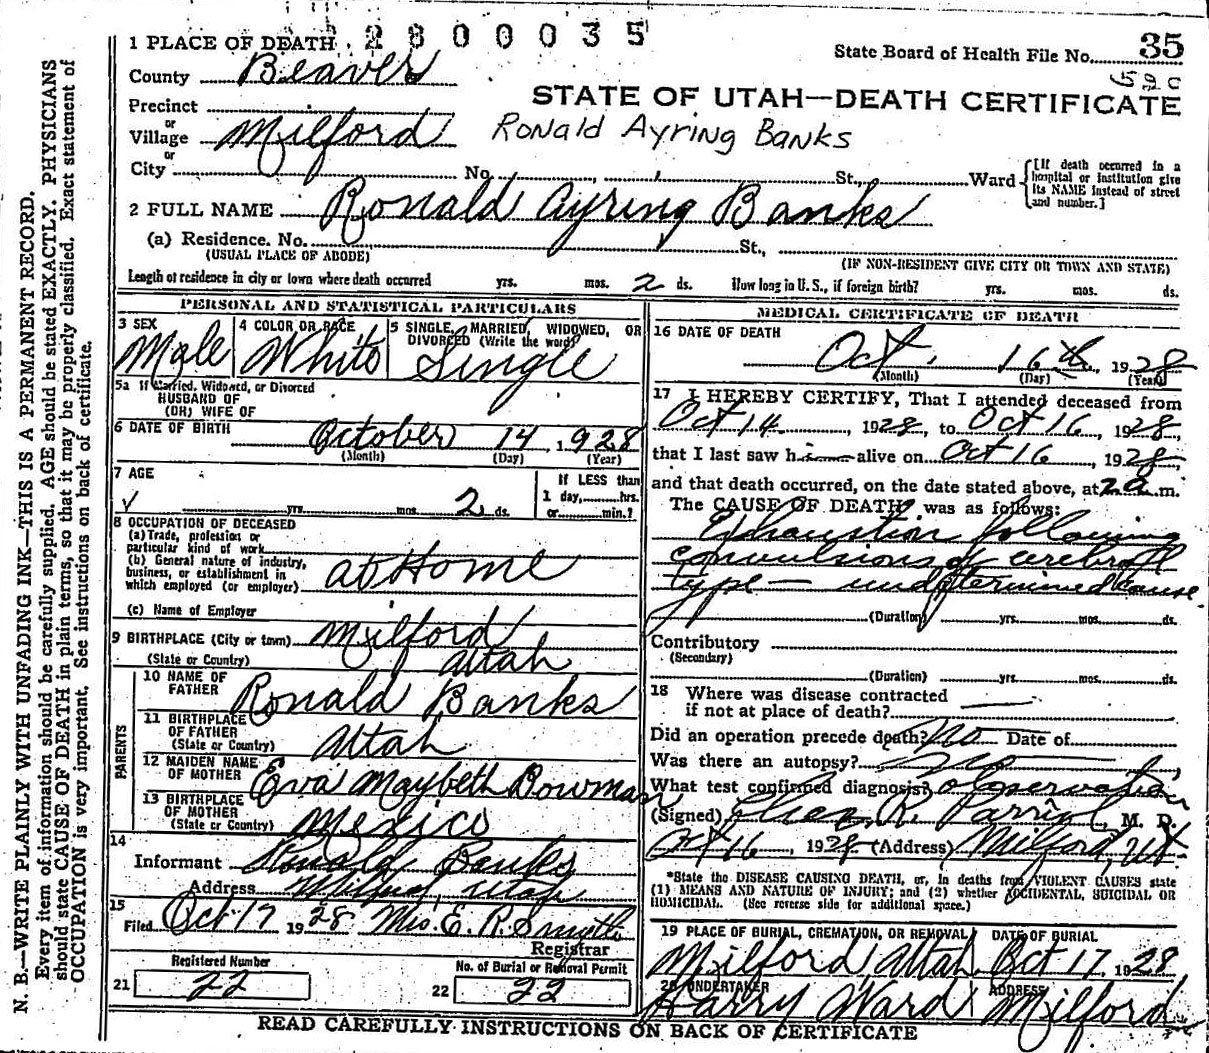 2800035
State Board of Health File No. 35
STATE OF UTAH—DEATH CERTIFICATE
Ronald Ayring Banks
1 PLACE OF DEATH
County Beaver
Precinct
or
Village Milford
or
City No. St., Ward
[If death occurred in a hospital or institution give its NAME instead of street and number.]
2 FULL NAME Ronald Ayring Banks
(a) Residence. No. St.,
(USUAL PLACE OF ABODE) (IF NON-RESIDENT GIVE CITY OR TOWN AND STATE)
Length of residence in city or town where death occurred yrs. mos. 2 ds. How long in U. S., if foreign birth? yrs. mos. ds.
PERSONAL AND STATISTICAL PARTICULARS
3 SEX Male
4 COLOR OR RACE White
5 SINGLE, MARRIED, WIDOWED, OR DIVORCED (Write the word) Single
5a If Married, Widowed, or Divorced
HUSBAND OF
(OR) WIFE OF
6 DATE OF BIRTH October 14, 1928
(Month) (Day) (Year)
7 AGE If LESS than
yrs. mos. 2 ds. 1 day, hrs.
or min.?
8 OCCUPATION OF DECEASED
(a) Trade, profession or
particular kind of work
(b) General nature of industry,
business, or establishment in
which employed (or employer) at Home
(c) Name of Employer
9 BIRTHPLACE (City or town) Milford
(State or Country) Utah
PARENTS
10 NAME OF FATHER Ronald Banks
11 BIRTHPLACE OF FATHER (State or Country) Utah
12 MAIDEN NAME OF MOTHER Eva Maybeth Bowman
13 BIRTHPLACE OF MOTHER (State or Country) Mexico
14
Informant Ronald Banks
Address Milford, Utah
15
Filed Oct 17 1928 Mrs. E. R. Smyth
Registrar
Registered Number
21 22
No. of Burial or Removal Permit
22 22
MEDICAL CERTIFICATE OF DEATH
16 DATE OF DEATH
Oct. 16th, 1928
(Month) (Day) (Year)
17 I HEREBY CERTIFY, That I attended deceased from
Oct 14, 1928, to Oct 16, 1928,
that I last saw him alive on Oct 16, 1928,
and that death occurred, on the date stated above, at 2 a. m.
The CAUSE OF DEATH, was as follows:
Exhaustion following
convulsions of cerebral
type — undetermined cause.
(Duration) yrs. mos. ds.
Contributory
(Secondary)
(Duration) yrs. mos. ds.
18 Where was disease contracted
if not at place of death?
Did an operation precede death? No Date of
Was there an autopsy? No
What test confirmed diagnosis? observation
(Signed) R. Parrish, M. D.
Oct 16, 1928 (Address) Milford, Ut.
*State the DISEASE CAUSING DEATH, or, in deaths from VIOLENT CAUSES state
(1) MEANS AND NATURE OF INJURY; and (2) whether ACCIDENTAL, SUICIDAL OR
HOMICIDAL. (See reverse side for additional space.)
19 PLACE OF BURIAL, CREMATION, OR REMOVAL DATE OF BURIAL
Milford Utah Oct 17, 1928
20 UNDERTAKER ADDRESS
Harry Ward Milford
READ CAREFULLY INSTRUCTIONS ON BACK OF CERTIFICATE
N. B.—WRITE PLAINLY WITH UNFADING INK—THIS IS A PERMANENT RECORD.
Every item of information should be carefully supplied. AGE should be stated EXACTLY. PHYSICIANS
should state CAUSE OF DEATH in plain terms, so that it may be properly classified. Exact statement of
OCCUPATION is very important. See instructions on back of certificate.